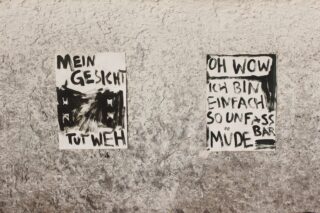 MEIN
GESICHT
TUT WEH
OH WOW
ICH BIN
EINFACH
SO UNFASS
BAR
MÜDE